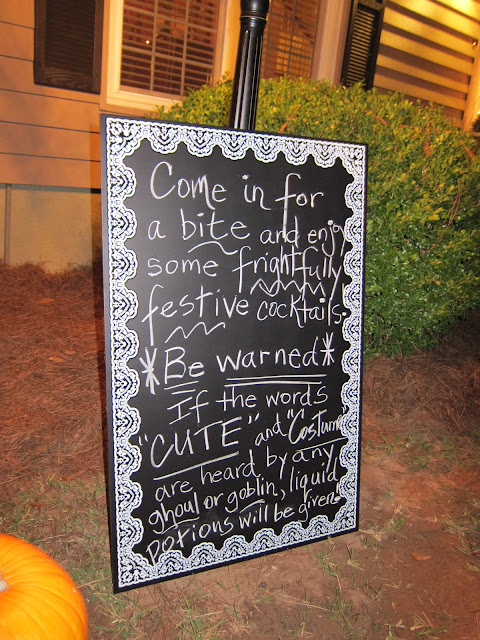 Come in for
a bite and enjoy
some frightfully
festive cocktails.
*Be warned*
If the words
"CUTE" and "Costume
are heard by any
ghoul or goblin, liquid
potions will be given!